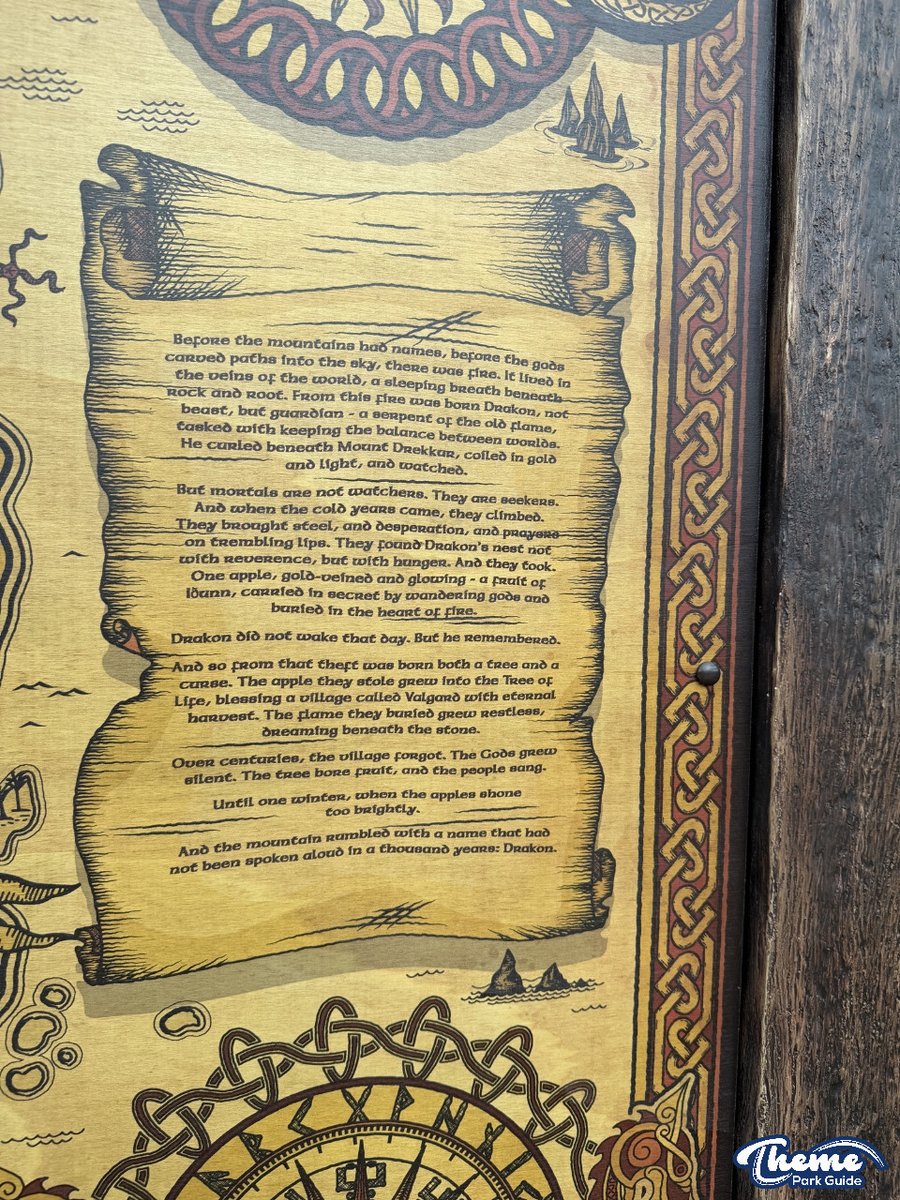 Before the mountains had names, before the gods
carved paths into the sky, there was fire. It lived in
the veins of the world, a sleeping breath beneath
rock and root. From this fire was born Drakon, not
beast, but guardian - a serpent of the old flame,
tasked with keeping the balance between worlds.
He curled beneath Mount Drekkar, coiled in gold
and light, and watched.
But mortals are not watchers. They are seekers.
And when the cold years came, they climbed.
They brought steel, and desperation, and prayers
on trembling lips. They found Drakon's nest not
with reverence, but with hunger. And they took.
One apple, gold-veined and glowing - a fruit of
Iðunn, carried in secret by wandering gods and
buried in the heart of fire.
Drakon did not wake that day. But he remembered.
And so from that theft was born both a tree and a
curse. The apple they stole grew into the Tree of
Life, blessing a village called Valgard with eternal
harvest. The flame they buried grew restless,
dreaming beneath the stone.
Over centuries, the village forgot. The Gods grew
silent. The tree bore fruit, and the people sang.
Until one winter, when the apples shone
too brightly.
And the mountain rumbled with a name that had
not been spoken aloud in a thousand years: Drakon.
Theme
Park Guide